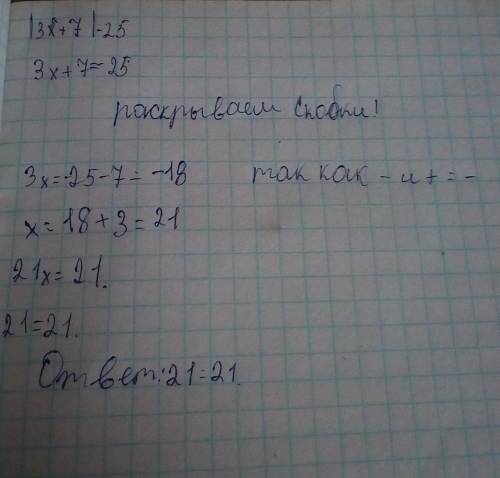 |3x+7|-25
3x+7=25
раскрываем скобки!
3x=-25-7=-18 так как - и + = -
x=18+3=21
21x=21.
21=21.
Ответ:21=21.